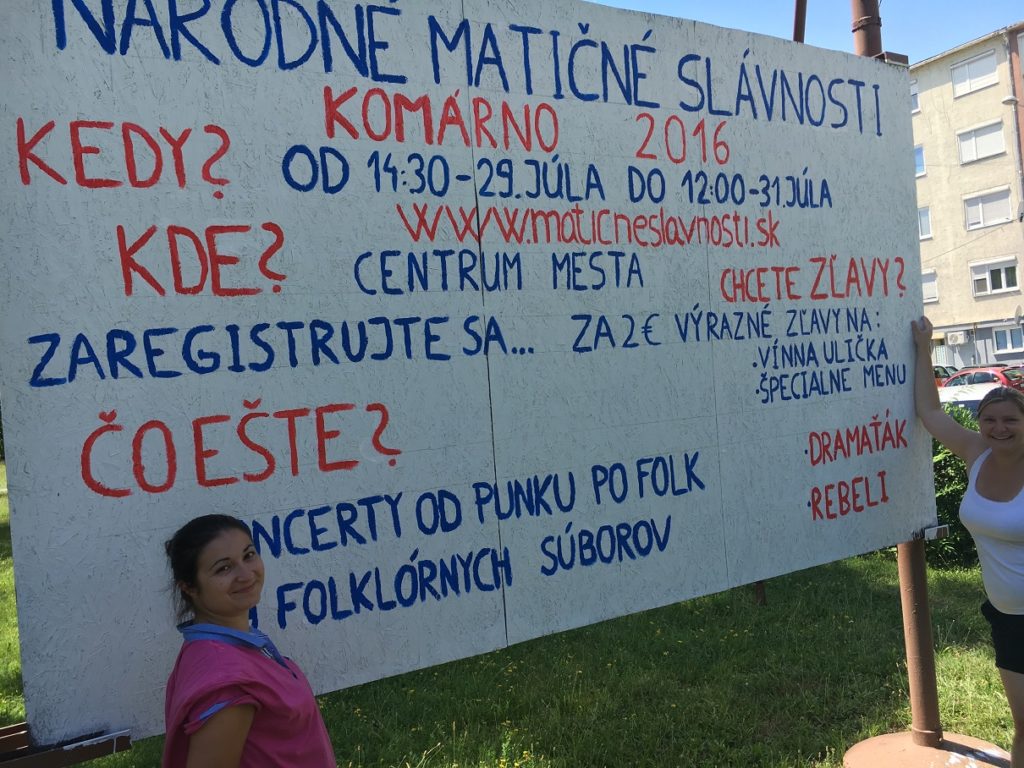 NÁRODNÉ MATIČNÉ SLÁVNOSTI
KOMÁRNO 2016
KEDY?
OD 14:30-29.JÚLA DO 12:00-31.JÚLA
www.maticneslavnosti.sk
KDE?
CENTRUM MESTA
CHCETE ZĽAVY?
ZAREGISTRUJTE SA... ZA 2€ VÝRAZNÉ ZĽAVY NA:
·VÍNNA ULIČKA
·ŠPECIALNE MENU
ČO EŠTE?
·DRAMAŤÁK
·REBELI
NCERTY OD PUNKU PO FOLK
FOLKLÓRNYCH SÚBOROV